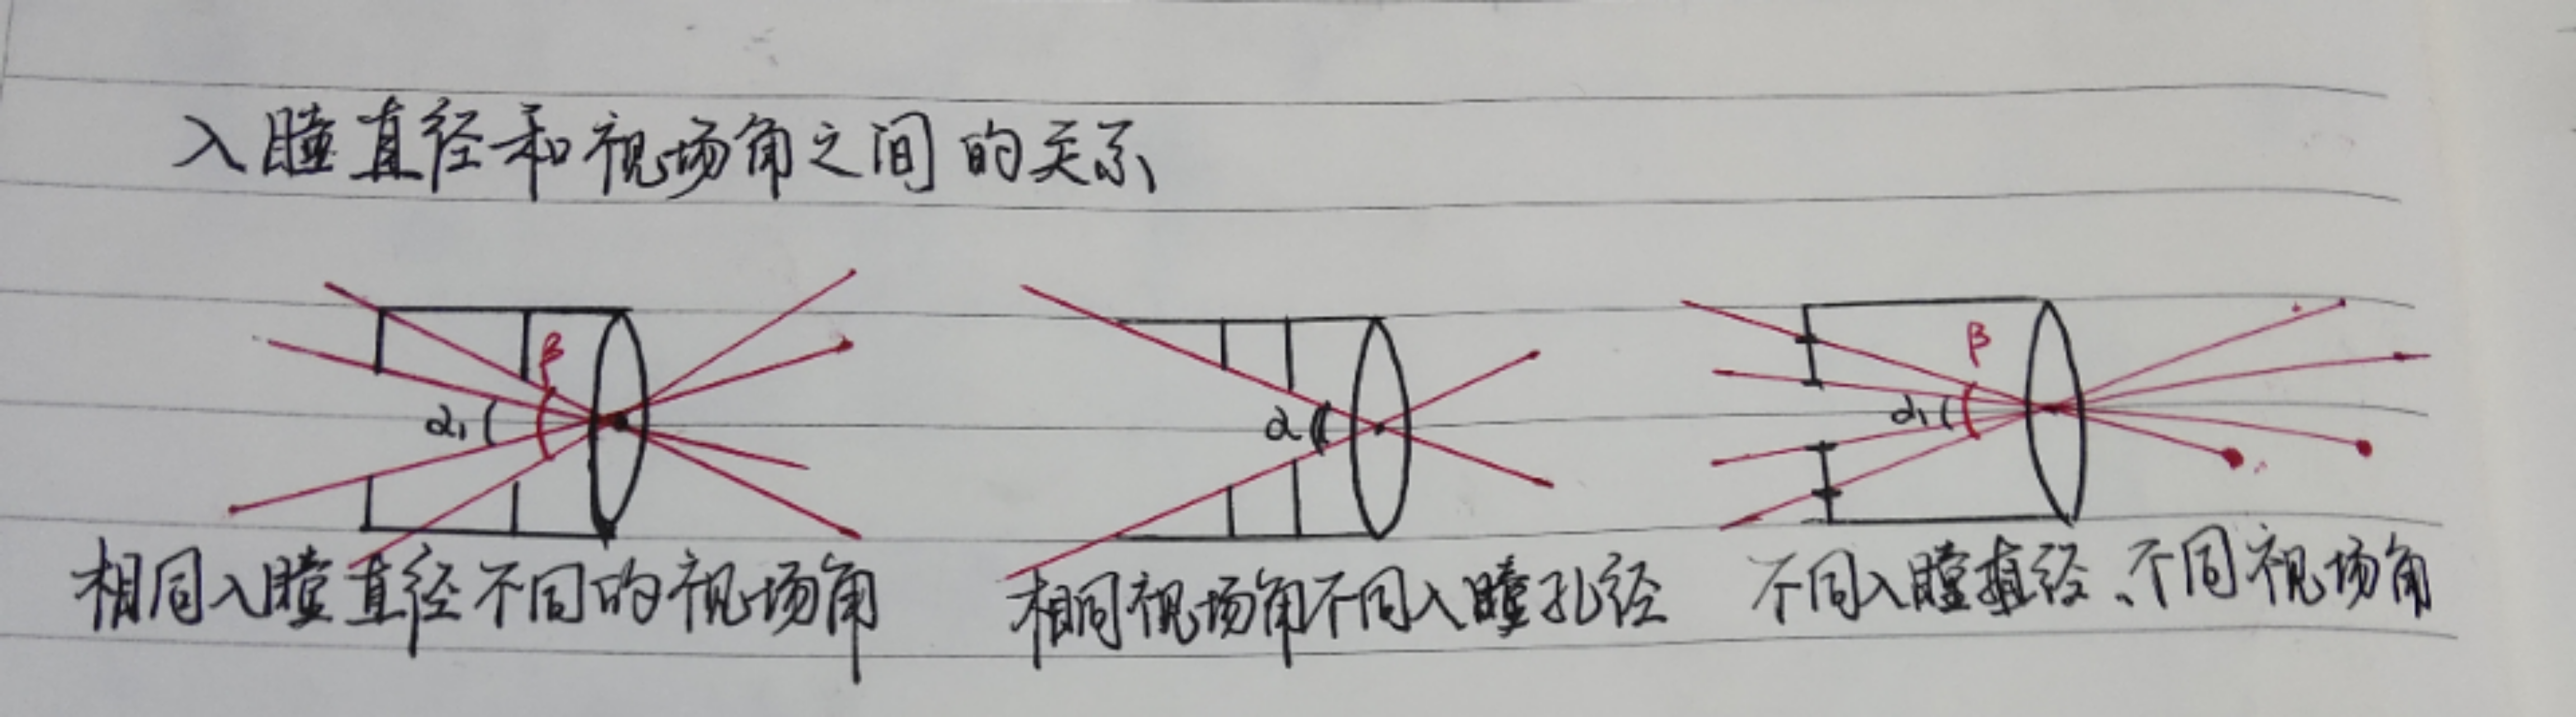 入瞳直径和视场角之间的关系
β
α₁
α
β
α₁
相同入瞳直径不同的视场角
相同视场角不同入瞳孔径
不同入瞳直径、不同视场角